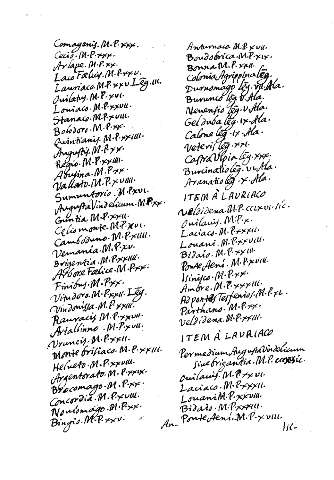 Comagenis. M.P. XXX.
Cecio. M.P. XX.
Arlape. M.P. XX.
Laco Felicis. M.P. XXV.
Lauriaco M.P. XXV. Leg. III.
Ouilatus. M.P. XVI.
Louiaco. M.P. XXVII.
Stanaco. M.P. XVIII.
Boiodoro. M.P. XX.
Quintianis. M.P. XXIIII.
Augustis. M.P. XX.
Regio. M.P. XXIIII.
Abusina. M.P. XX.
Vallato. M.P. XVIII.
Sumuntorio. M.P. XVI.
Augusta Vindelicum. M.P. XX.
Guntia M.P. XXII.
Celio monte. M.P. XVI.
Camboduno. M.P. XIIII.
Vemania. M.P. XV.
Brigantia. M.P. XXIIII.
Arbore Foelice. M.P. XX.
Finibus. M.P. XX.
Vitudoro. M.P. XXII. Leg.
Vindonissa. M.P. XXIIII.
Rauracis M.P. XXVII.
Artalbinno. M.P. XVII.
Vruncis. M.P. XXII.
Monte brisiaco M.P. XXIII.
Helueto. M.P. XXVIII.
Argentorato. M.P. XXIX.
Brocomago. M.P. XX.
Concordia. M.P. XVIII.
Nouiomago. M.P. XX.
Bingio. M.P. XXV.
An-
Antunnaco M.P. XVII.
Boudobrica. M.P. XIX.
Bonna. M.P. XXII.
Colonia Agrippina leg.
Durnomago leg. VII. Ala.
Burunco leg. V. Ala.
Neuensio leg. V. Ala.
Gelduba leg. IX. Ala.
Calone leg. IX. Ala.
Veteris leg. XXI.
Castra Vlpia leg. XXX.
Burcinatio leg. VI. Ala.
Arenatio leg. X. Ala.
ITEM À LAURIACO
Veldidena. M.P. CCLXVI. sic.
Ouilauis. M.P. X.
Laciaco. M.P. XXXII.
Iouaui. M.P. XXVIII.
Bidaio. M.P. XXXIII.
Ponte Aeni. M.P. XVIII.
Isinisco. M.P. XX.
Ambre. M.P. XXXII.
Ad pontes Tesfenios. M.P. XL.
Parthano. M.P. XX.
Veldidena. M.P. XXIII.
ITEM À LAURIACO
Per medium Augusta Vindelicum
siue brigantia. M.P. sic.
Ouilauis. M.P. XXVI.
Laciaco. M.P. XXXII.
Iouaui M.P. XXVIII.
Bidaio. M.P. XXXIII.
Ponte Aeni. M.P. XVIII.